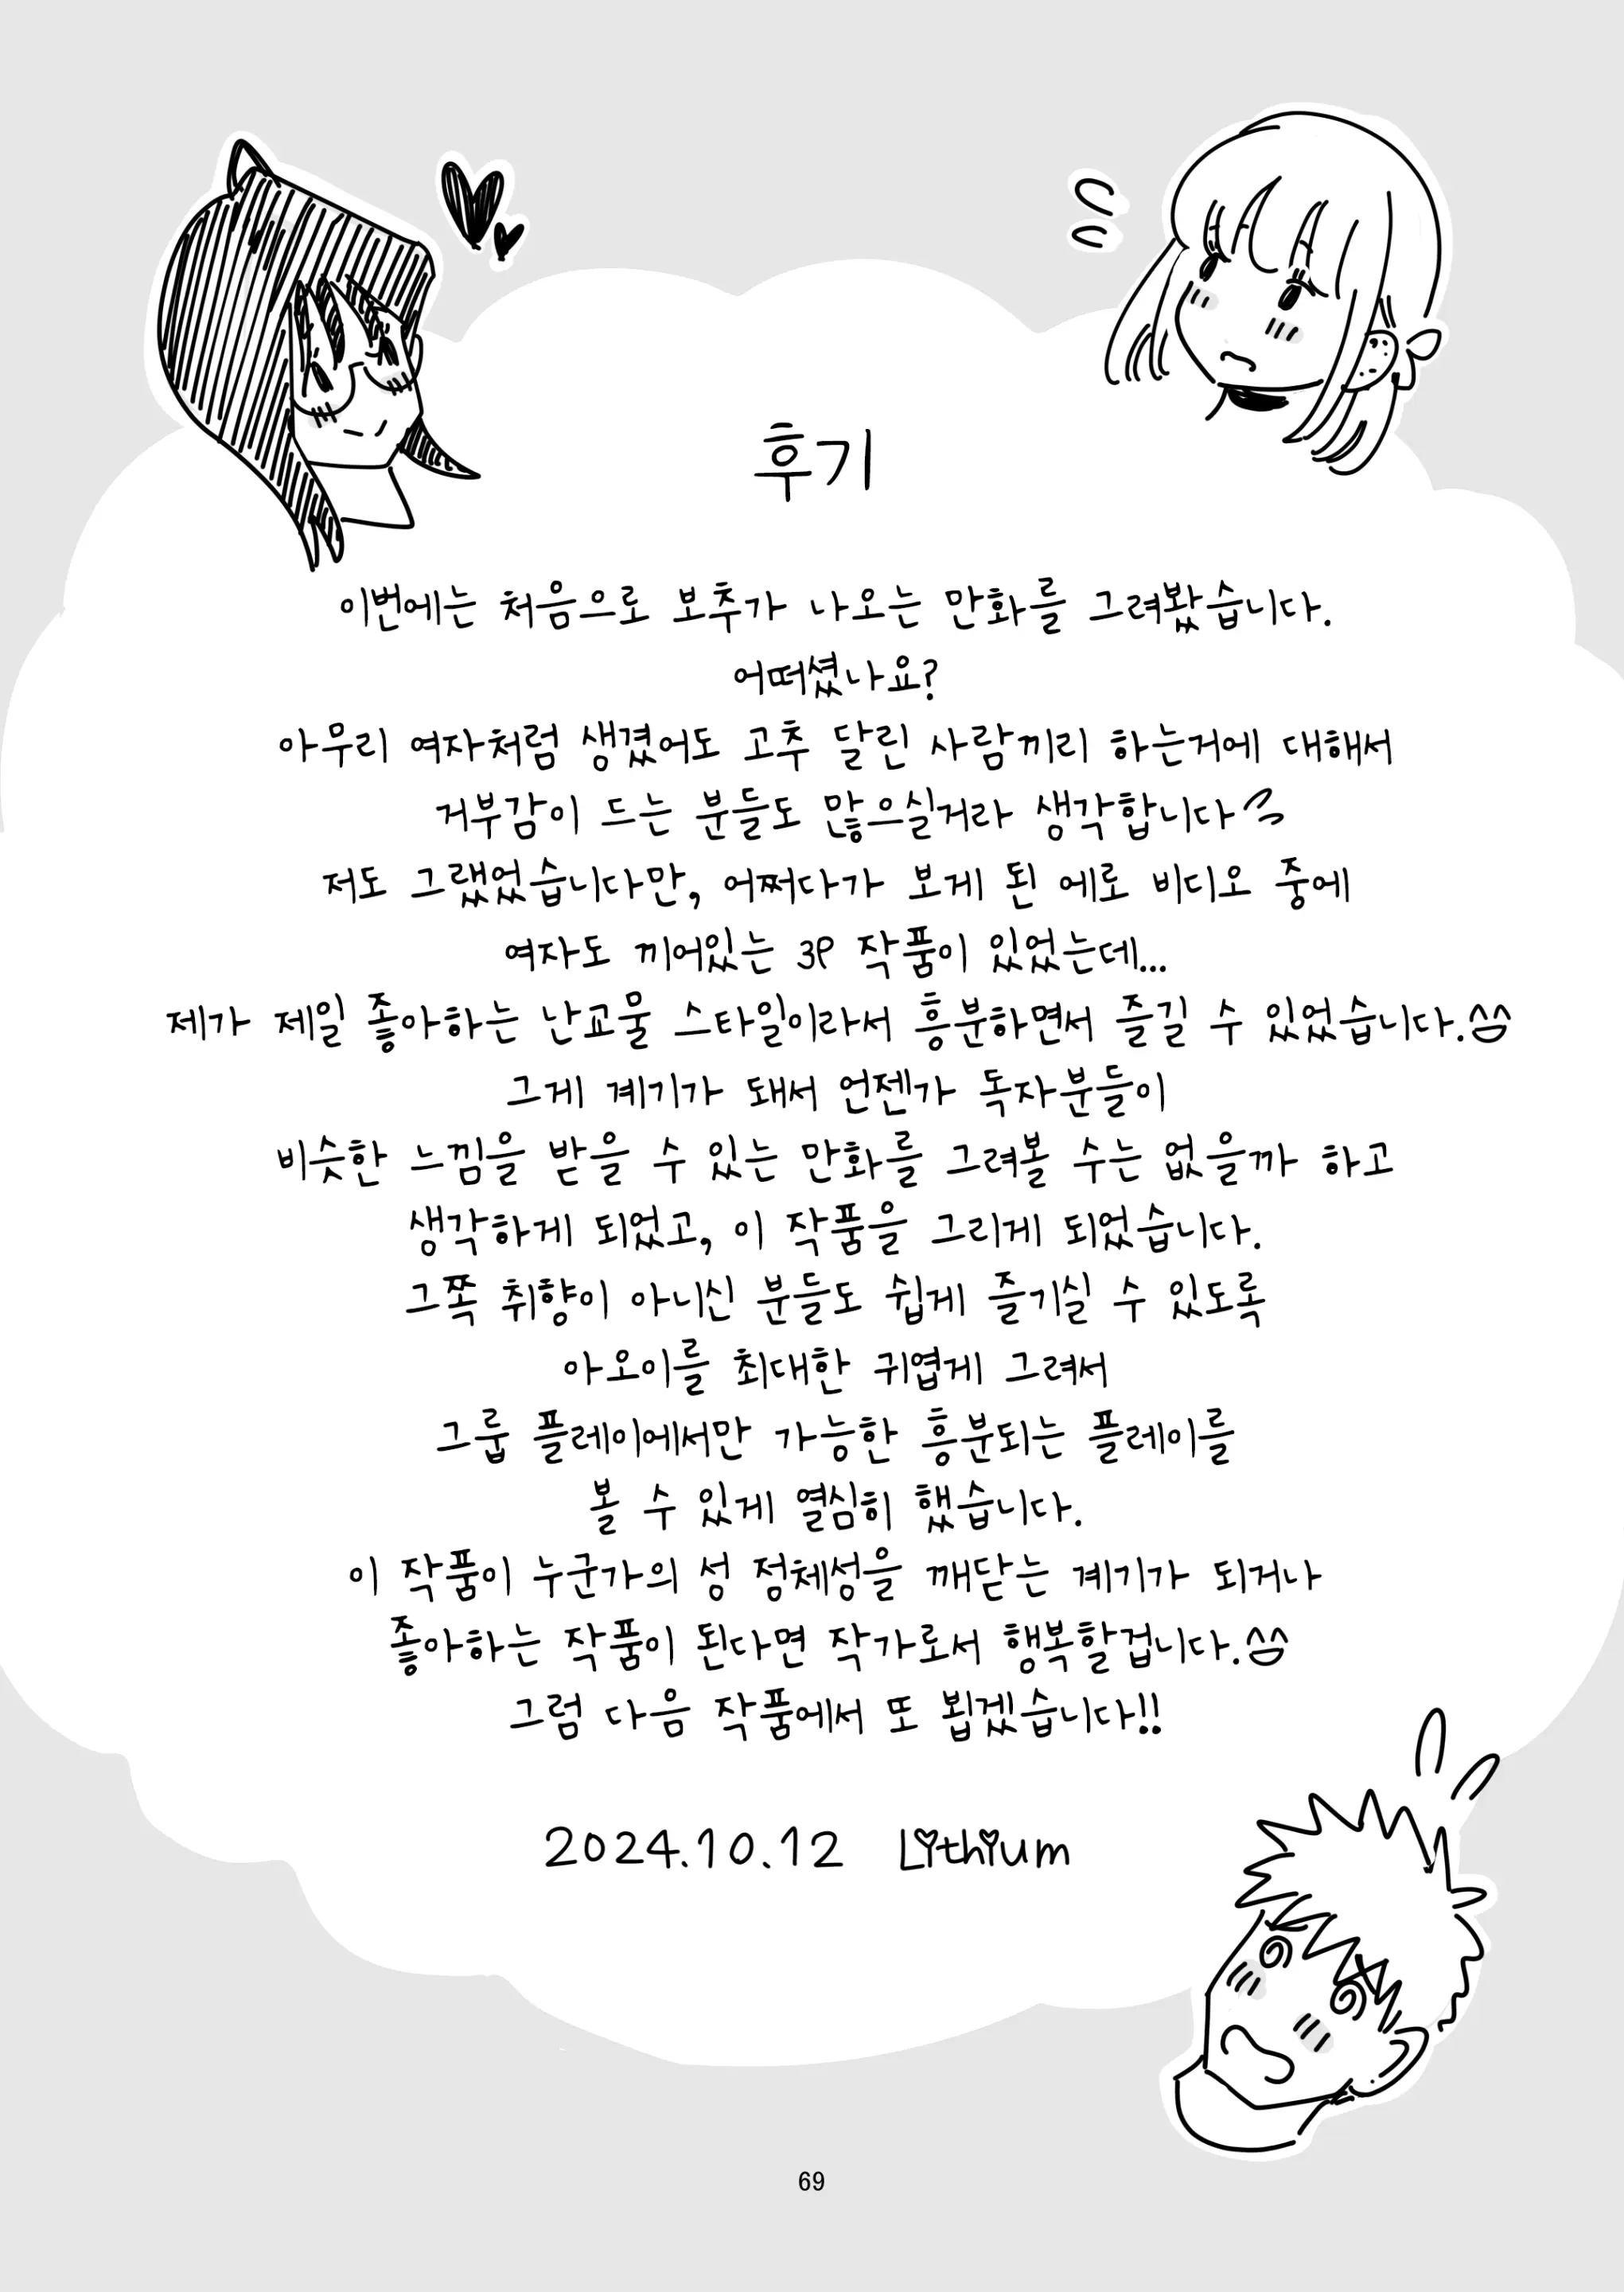 후기
이번에는 처음으로 보추가 나오는 만화를 그려봤습니다.
어떠셨나요?
아무리 여자처럼 생겼어도 고추 달린 사람끼리 하는거에 대해서
거부감이 드는 분들도 많으실거라 생각합니다
저도 그랬었습니다만, 어쩌다가 보게 된 에로 비디오 중에
여자도 끼어있는 3P 작품이 있었는데...
제가 제일 좋아하는 난교물 스타일이라서 흥분하면서 즐길 수 있었습니다.^^
그게 계기가 돼서 언젠가 독자분들이
비슷한 느낌을 받을 수 있는 만화를 그려볼 수는 없을까 하고
생각하게 되었고, 이 작품을 그리게 되었습니다.
그쪽 취향이 아니신 분들도 쉽게 즐기실 수 있도록
아오이를 최대한 귀엽게 그려서
그룹 플레이에서만 가능한 흥분되는 플레이를
볼 수 있게 열심히 했습니다.
이 작품이 누군가의 성 정체성을 깨닫는 계기가 되거나
좋아하는 작품이 된다면 작가로서 행복할겁니다.^^
그럼 다음 작품에서 또 뵙겠습니다!!
2024.10.12 Lithium
69